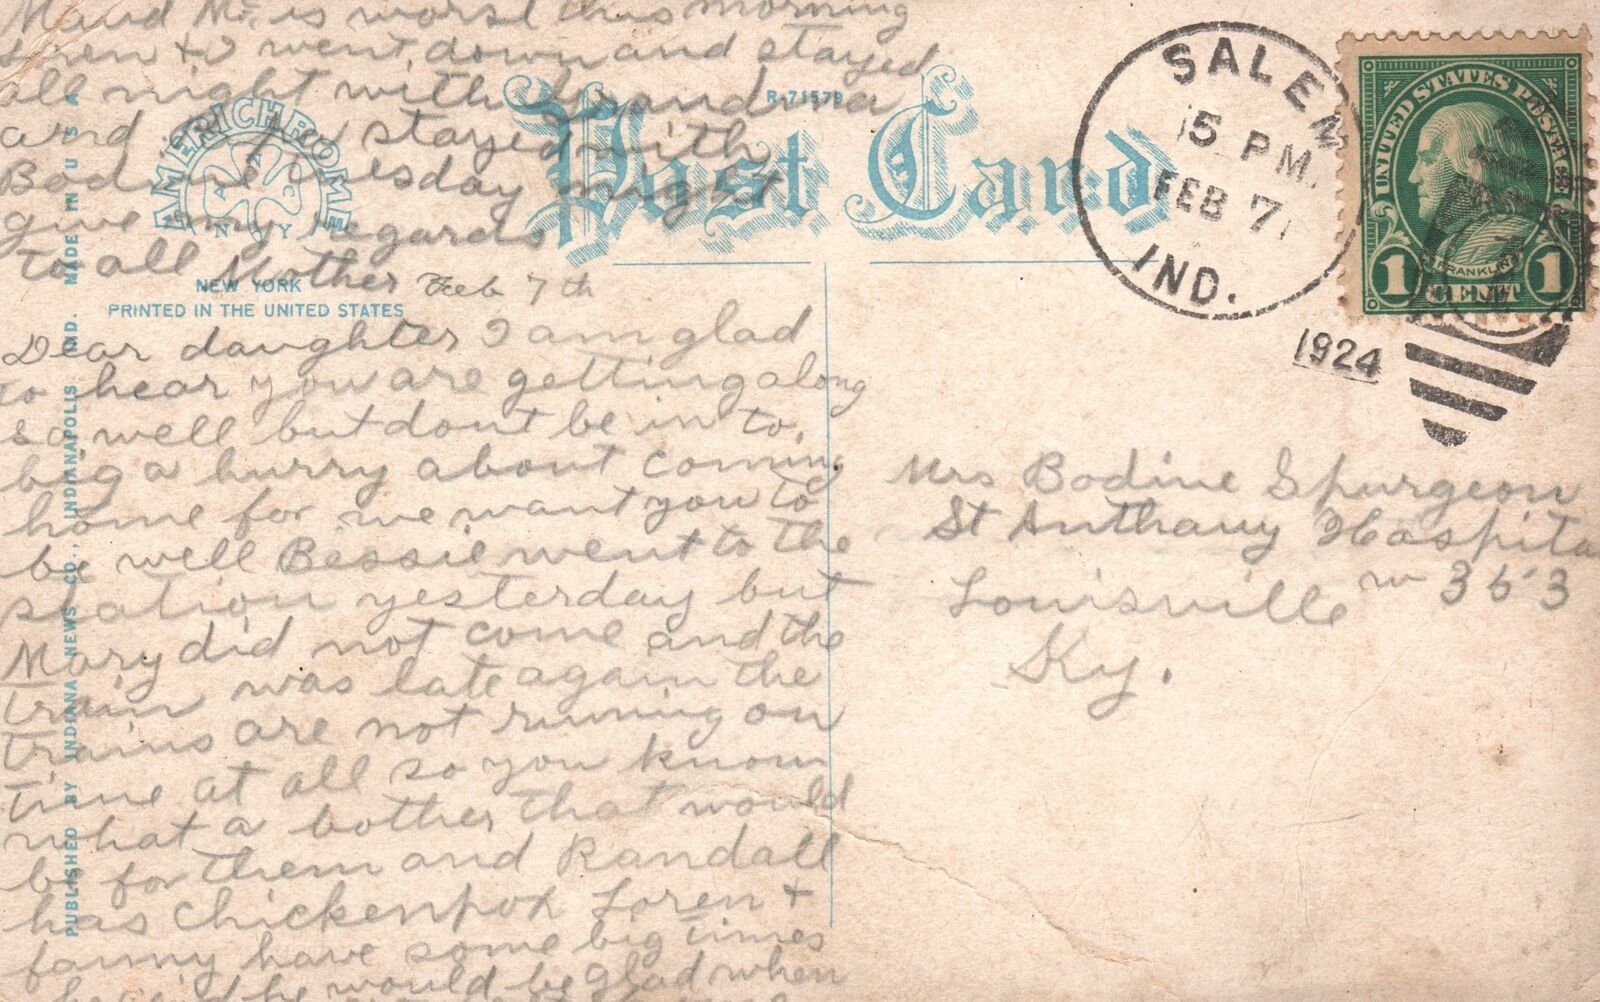 Maud Mc is worst this morning
Loren + I went down and stayed
all night with Grandma
and stayed with
Bodine Tuesday night
give my regards
to all Mother Feb 7th
Dear daughter I am glad
to hear you are getting along
so well but dont be in to
big a hurry about coming
home for we want you to
be well Bessie went to the
station yesterday but
Mary did not come and the
train was late again the
trains are not running on
time at all so you know
what a bother that would
be for them and Randall
has chickenpox Loren +
fanny have some big times
he said he would be glad when
AMERICHROME
N Y
NEW YORK
PRINTED IN THE UNITED STATES
R-71579
Post Card
PUBLISHED BY INDIANA NEWS CO., INDIANAPOLIS, IND. MADE IN U S A
SALEM
5 PM
FEB 7
IND.
1924
UNITED STATES POSTAGE
FRANKLIN
1 CENT 1
Mrs Bodine Spurgeon
St Anthany Hospita
Louisville rm 353
Ky.